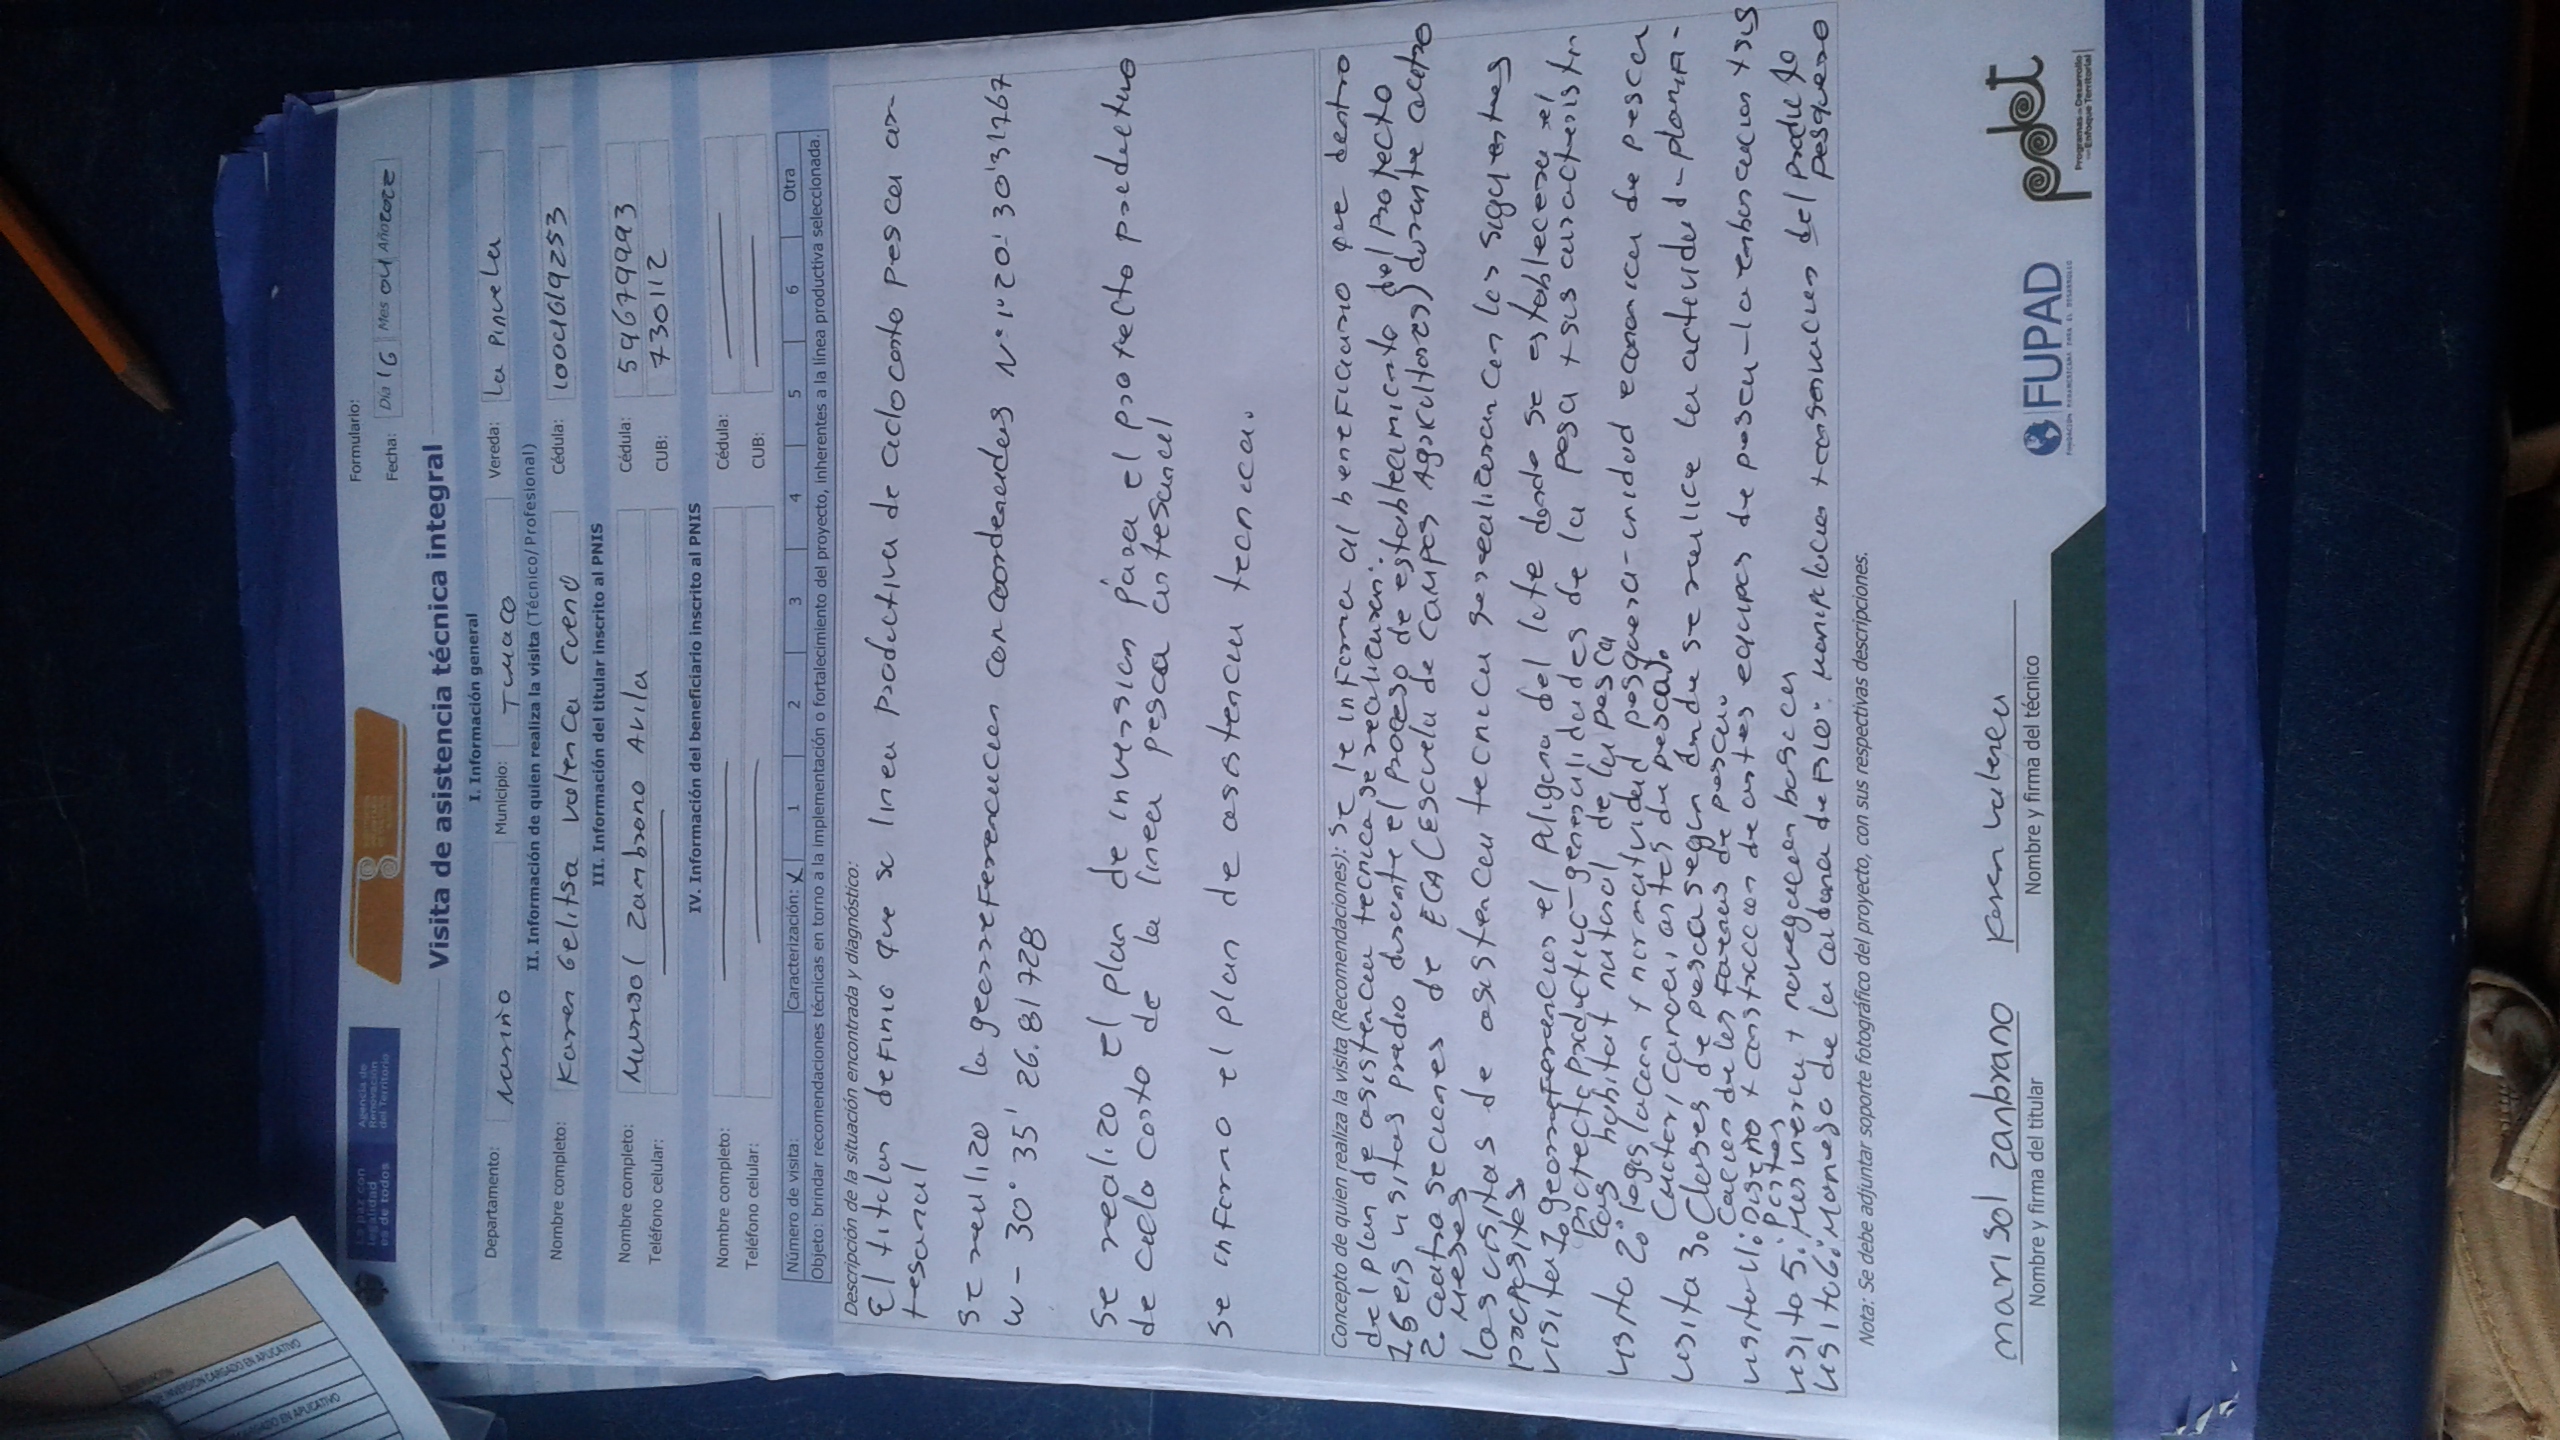 La paz con
legalidad
es de todos
Agencia de
Renovación
del Territorio
Formulario:
Fecha: Dia 16 Mes 04 Año 2022
Visita de asistencia técnica integral
I. Información general
Departamento: Nariño Municipio: Tumaco Vereda: La Pinuela
II. Información de quien realiza la visita (Técnico/Profesional)
Nombre completo: Karen Gelitsa Valencia Cueno Cédula: 1004619253
III. Información del titular inscrito al PNIS
Nombre completo: Marisol Zambrano Avila Cédula: 59679993
Teléfono celular: CUB: 730112
IV. Información del beneficiario inscrito al PNIS
Nombre completo: Cédula:
Teléfono celular: CUB:
Número de visita: Caracterización: X 1 2 3 4 5 6 Otra
Objeto: brindar recomendaciones técnicas en torno a la implementación o fortalecimiento del proyecto, inherentes a la línea productiva seleccionada.
Descripción de la situación encontrada y diagnóstico:
El titular definio que su linea productiva de ciclo corto pesca ar-
tesanal
Se realizo la georreferenciacion con coordenadas N: 1° 20' 30' 31767
W - 30° 35' 26.81728
Se realizo el plan de inversion para el proyecto productivo
de ciclo corto de la linea pesca artesanal
Se informo el plan de asistencia tecnica.
Concepto de quien realiza la visita (Recomendaciones): Se le informa al beneficiario que dentro
del plan de asistencia tecnica se realizaran:
1. Seis visitas predio durante el proceso de establecimiento del proyecto
2. cuatro secciones de ECA (Escuela de campos Agricultores) durante cuatro
meses
las visitas de asistencia tecnica se realizaran con los siguientes
propositos
visita 1: georreferenciar el poligono del lote donde se establecera el
proyecto productivo - generalidades de la pesca y sus caracteristi
cas habitat natural de la pesca
visita 2: legislacion y normatividad pesquera - unidad economica de pesca
visita 3: Clases de pesca segun donde se realice la actividad - planifi-
cacion de las faenas de pesca.
visita 4: Diseño y construccion de artes equipos de pesca - la embarcacion y sus
partes
visita 5: Marineria y navegacion basica
visita 6: Manejo de la cadena de frio: manipulacion y conservacion del producto
pesquero
Nota: Se debe adjuntar soporte fotográfico del proyecto, con sus respectivas descripciones.
marisol zanbrano
Nombre y firma del titular
Karen valencia
Nombre y firma del técnico
FUPAD
FUNDACIÓN PANAMERICANA PARA EL DESARROLLO
pdet
Programas de Desarrollo
con Enfoque Territorial
CARGADO EN APLICATIVO